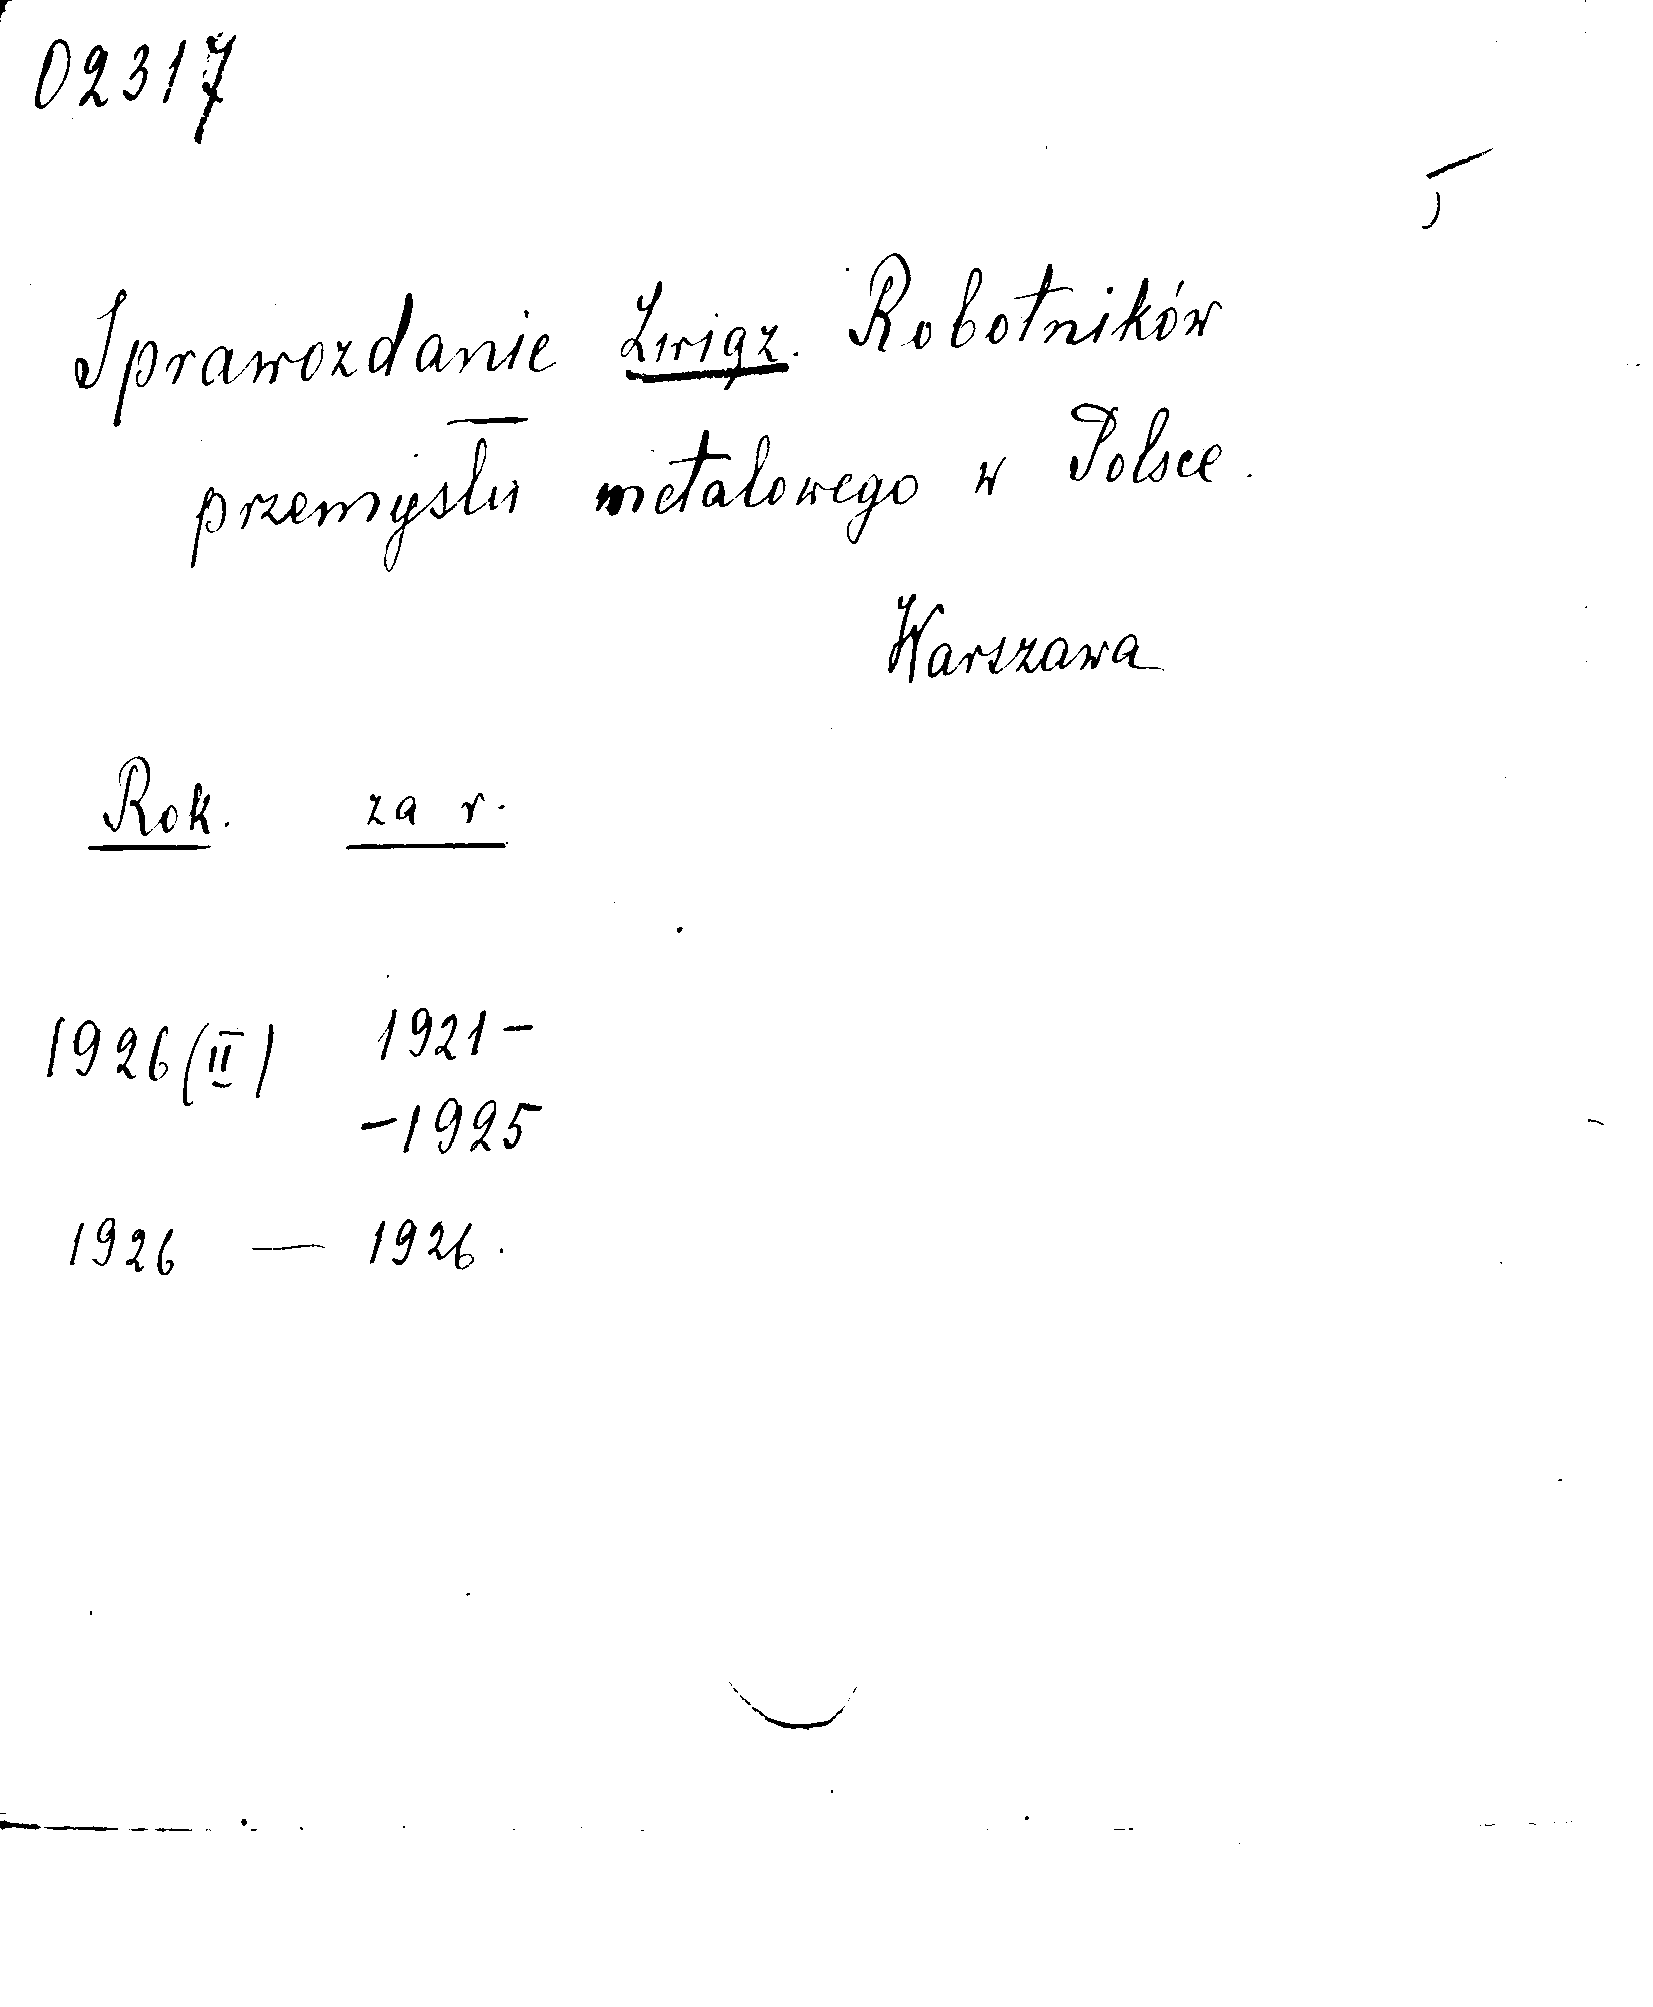 02317
Sprawozdanie Związ. Robotników
przemysłu metalowego w Polsce.
Warszawa
Rok. za r.
1926 (II) 1921-
-1925
1926 — 1926.